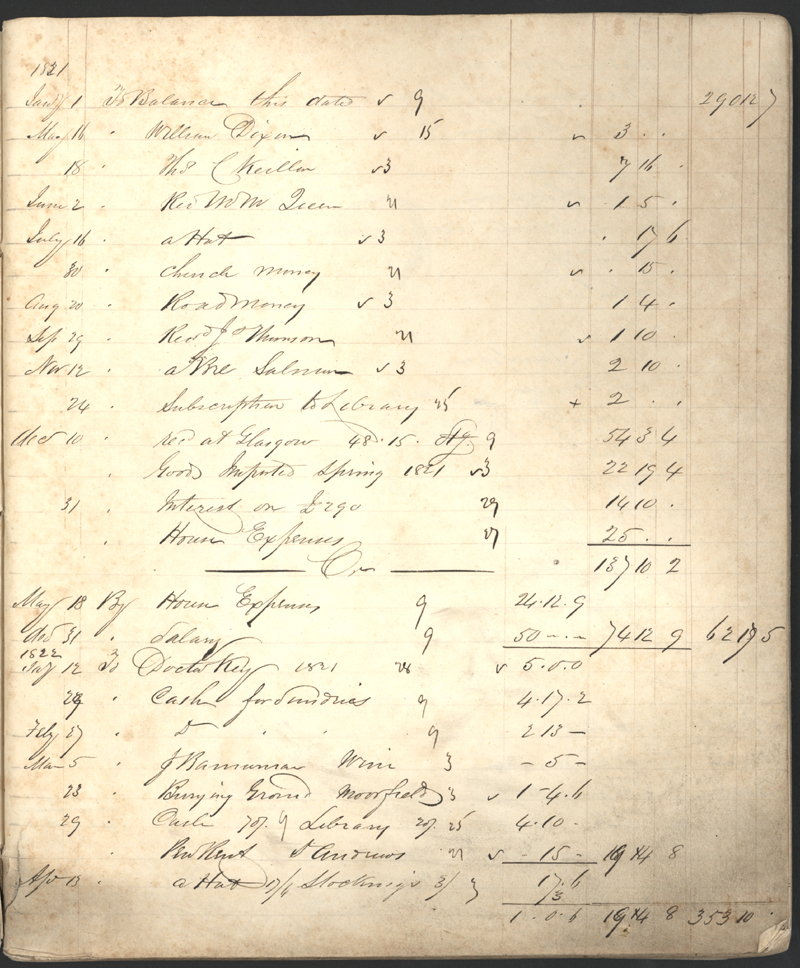 1821
Jany 1 To Balance this date v 9 290 12 7
May 16 " William Dixon v 15 v 3 . .
18 Thos C Keillor v 3 7 16 .
June 2 . Rev Wm 21 v 1 5 .
July 16 a Hat v 3 . 17 6
30 Church money 21 v . 15 .
Aug 20 . Road money v 3 1 4 .
Sep 29 . Revd J Thomson 21 v 1 10 .
Nov 12 . a Salmon v 3 2 10 .
24 . Subscription to Library 25 + 2 . .
Dec 10 . rec at Glasgow 48. 15. 9 54 3 4
. Goods Imported Spring 1821 v 3 22 19 4
31 . Interest on £290 29 14 10 .
. House Expenses 27 25 . .
Cr 137 10 2
May 18 By House Expenses 9 24.12.9
Dec 31 . Salary 9 50 - - 74 12 9 62 17 5
1822
Jany 12 To Doctor Key 1821 28 v 5.0.0
Cash for Sundries 9 4.17.2
Feby 27 . Do " " 9 2 13 -
Mar 5 . J Wine 3 - 5 -
23 Burying Ground Moorfields 3 v 1 - 4.6
29 . Cash 70/. 9 Library 20/. 25 4.10 -
. Pew Rent St Andrews 21 v - 15 - 19 4 8
Apr 13 . a Hat 17/6 Stockings 3/ 3 17.6
3
1.0.6 19 4 8 353 10 .